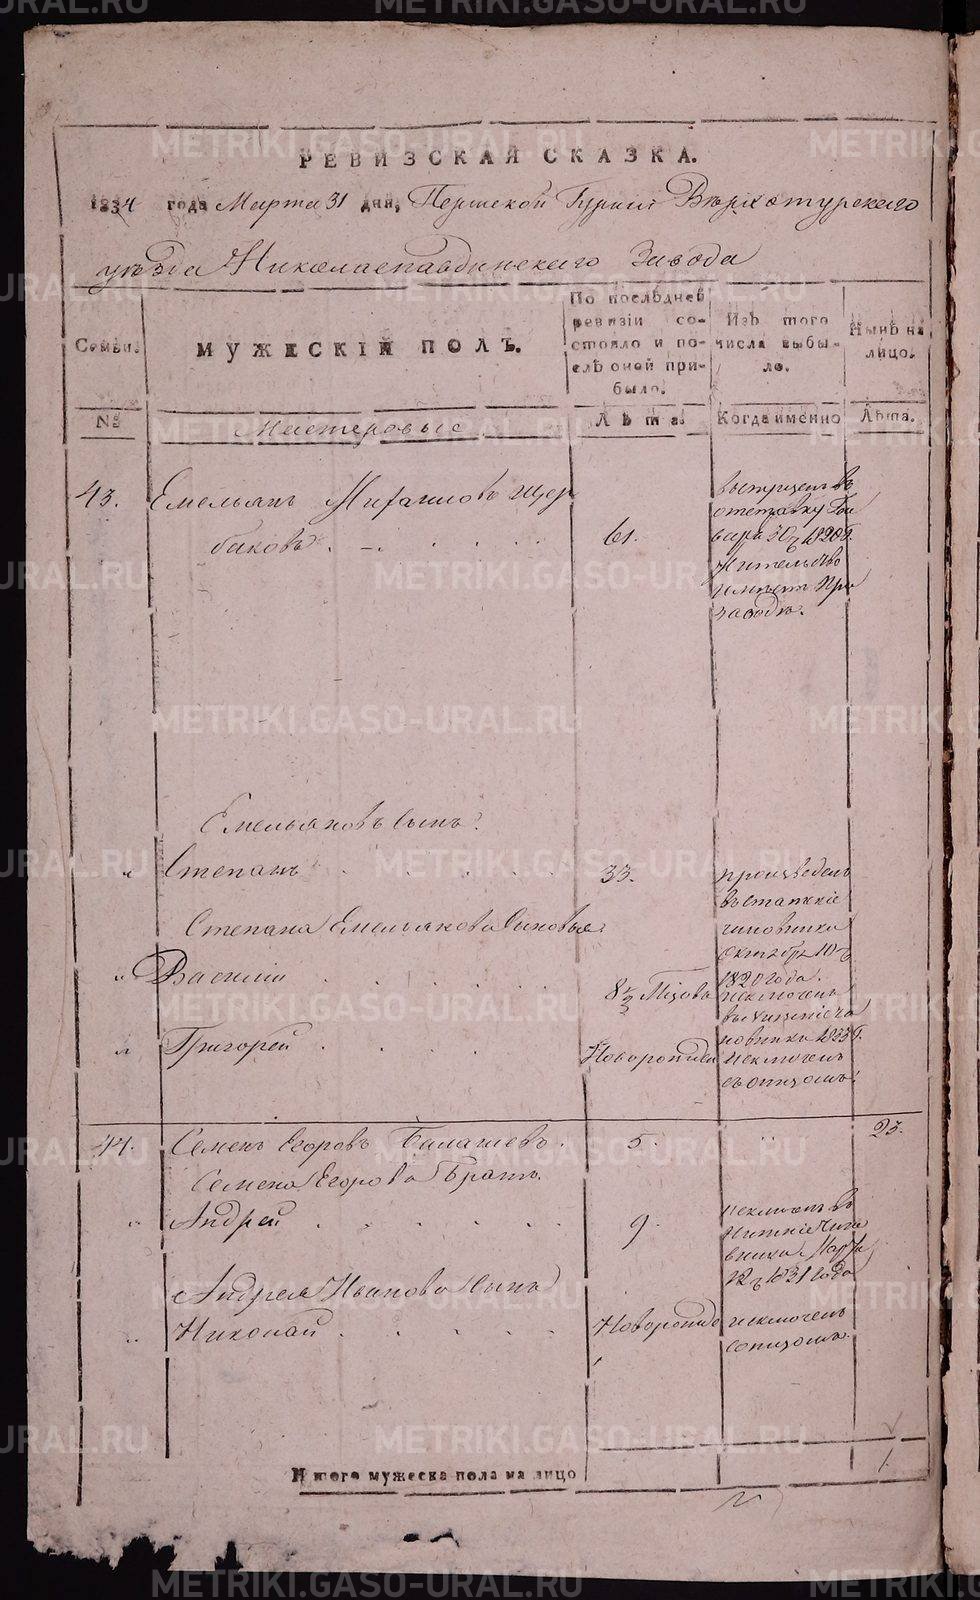 РЕВИЗСКАЯ СКАЗКА.
1834 года Марта 31 дня, Пермской Губернии Верхотурского
уѣзда Николаепавдинскаго Завода
Семьи.
МУЖЕСКІЙ ПОЛЪ.
По послѣдней ревизіи состояло и послѣ оной прибыло.
Изъ того числа выбыло.
Нынѣ на лицо.
№
Мастеровые
Лѣта.
Когда именно
Лѣта.
43. Емельянъ Михаиловъ Щер
баковъ
61.
выпущенъ въ
отставку Ген
варя 30 1820 г.
Жительство
имѣетъ при
заводѣ.
Емельяновъ сынъ.
" Степанъ 33.
произведенъ
въ
чиновники
октября 10
1820 года.
Степана Емельянова сыновья
" Василій 8 1/2
исключенъ
въ нижніе чи
новники 1833 г.
" Григорей Новорожден
исключенъ
съ отцомъ.
44. Семенъ Егоровъ Балашевъ. 5. " 23.
Семена Егорова братъ.
" Андрей 9.
исключенъ въ
нижніе чино
вники Марта
22 1831 года
Андрея Иванова сынъ
" Николай Новорожде
исключенъ
с отцомъ.
Итого мужеска пола на лицо 1.
METRIKI.GASO-URAL.RU